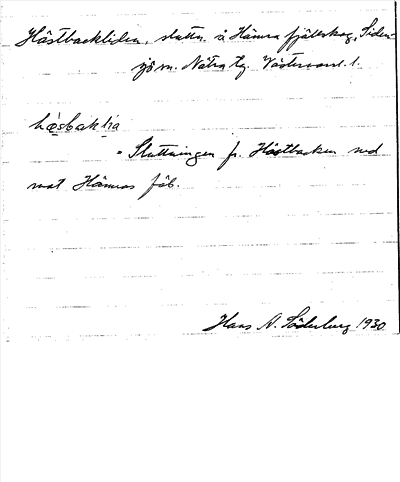 Hästbackliden, sluttn. å Hämra fjällskog, Siden-
sjö sn. Nätra tg. Västernorrl. l.
hɑ̀sbaklıa
= Sluttningen fr. Hästbacken ned
mot Hämras fäb.
Hans A. Söderberg 1930